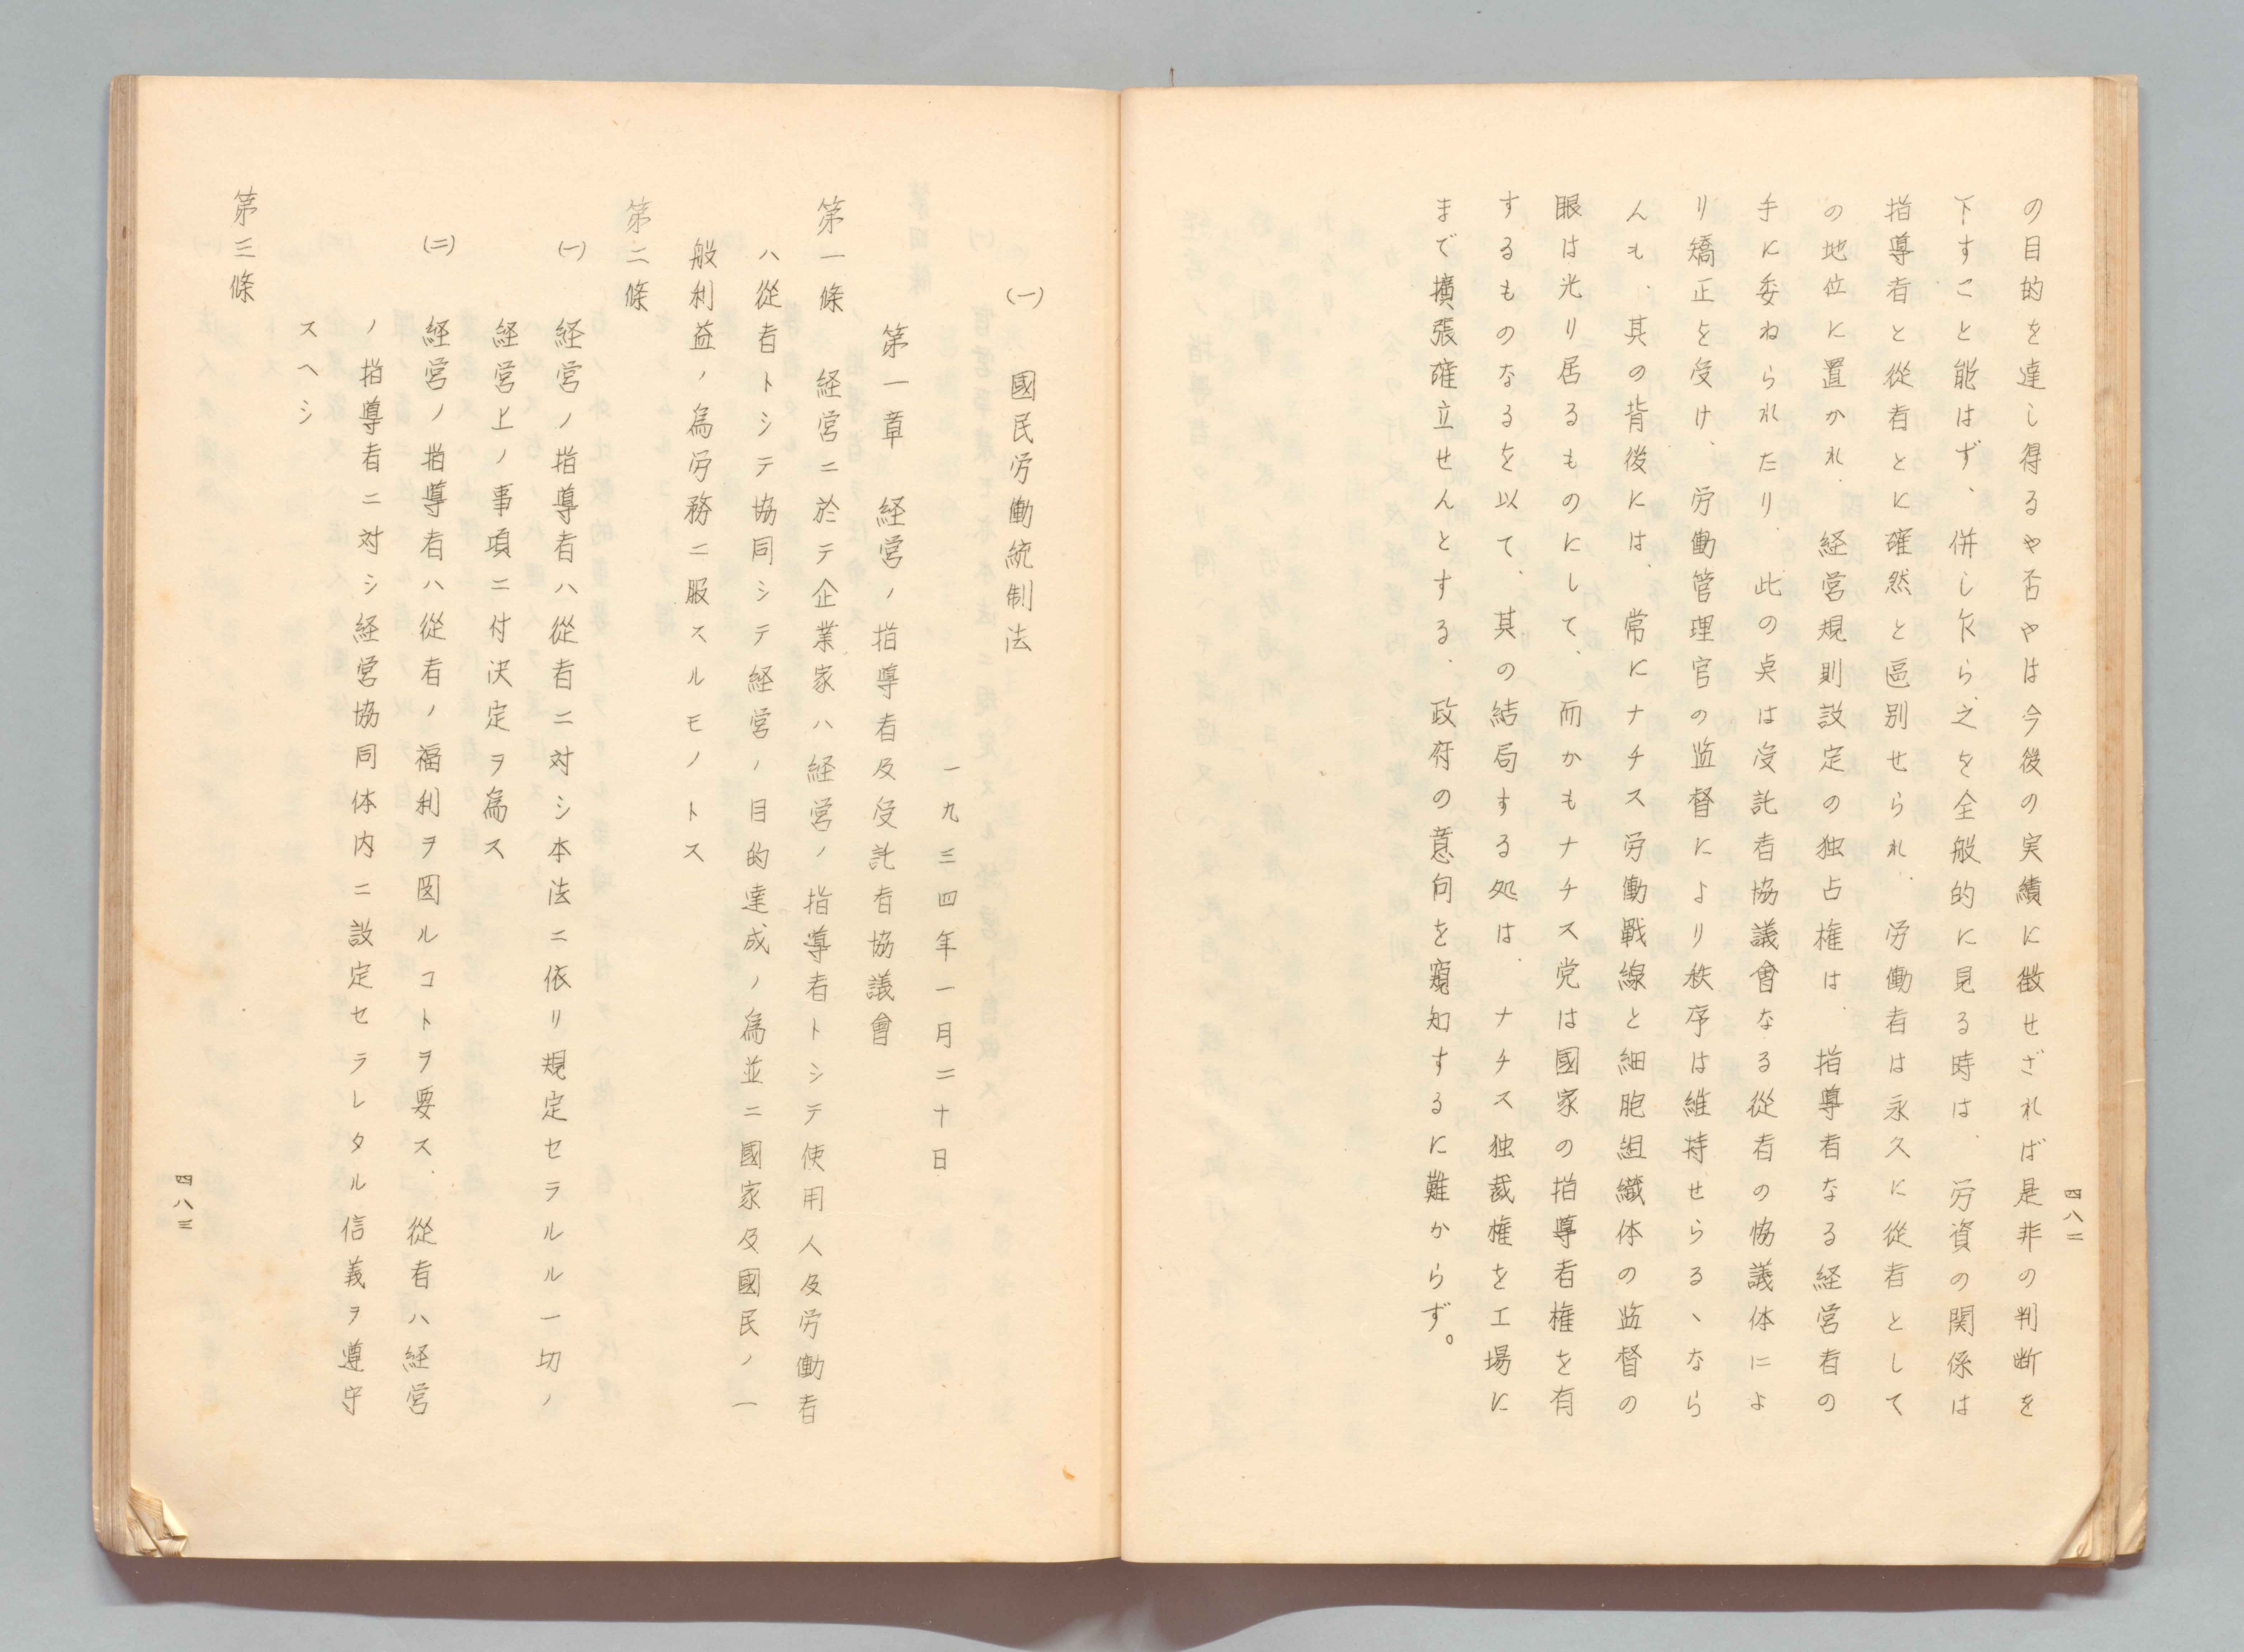 四八二
の目的を達し得るや否やは今後の実績に徴せざれば是非の判断を
下すこと能はず、併し乍ら之を全般的に見る時は、労資の関係は
指導者と從者とに確然と區別せられ、労働者は永久に從者として
の地位に置かれ、経営規則設定の独占権は、指導者なる経営者の
手に委ねられたり、此の点は受託者協議會なる從者の協議体によ
り矯正を受け、労働管理官の监督により秩序は維持せらるゝなら
んも、其の背後には、常にナチス労働戰線と細胞組織体の监督の
眼は光り居るものにして、而かもナチス党は國家の指導者権を有
するものなるを以て、其の結局する処は、ナチス独裁権を工場に
まで擴張確立せんとする、政府の意向を窺知するに難からず。
(一) 國民労働統制法
一九三四年一月二十日
第一章 経営ノ指導者及受託者協議會
第一條 経営ニ於テ企業家ハ経営ノ指導者トシテ使用人及労働者
ハ從者トシテ協同シテ経営ノ目的達成ノ為並ニ國家及國民ノ一
般利益ノ為労務ニ服スルモノトス
第二條
(一) 経営ノ指導者ハ從者ニ対シ本法ニ依リ規定セラルル一切ノ
経営上ノ事項ニ付決定ヲ為ス
(二) 経営ノ指導者ハ從者ノ福利ヲ図ルコトヲ要ス、從者ハ経営
ノ指導者ニ対シ経営協同体内ニ設定セラレタル信義ヲ遵守
スヘシ
第三條
四八三